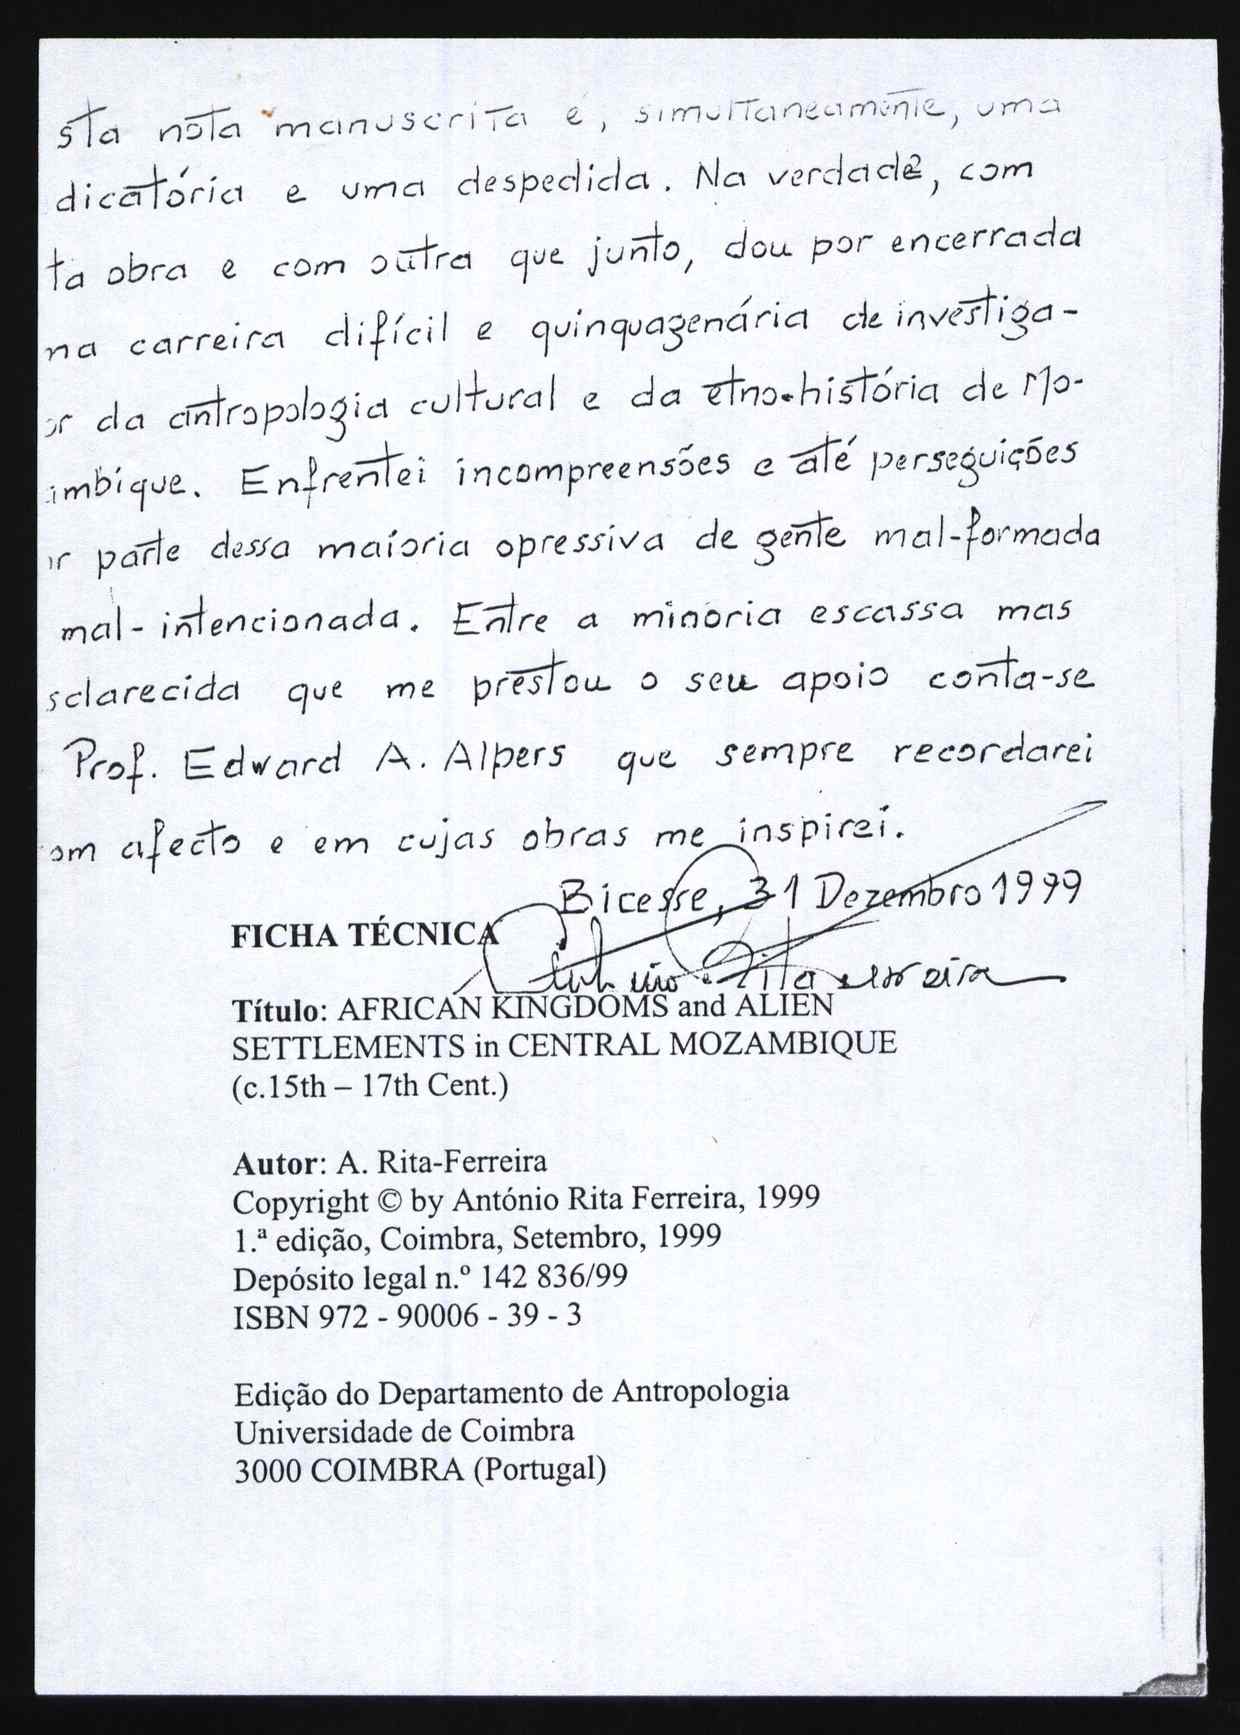 sta nota manuscrita é, simultaneamente, uma
dicatória e uma despedida. Na verdade, com
ta obra e com outra que junto, dou por encerrada
na carreira difícil e quinquagenária de investiga-
or da antropologia cultural e da etno-história de Mo-
imbique. Enfrentei incompreensões e até perseguições
or parte dessa maioria opressiva de gente mal-formada
mal-intencionada. Entre a minoria escassa mas
sclarecida que me prestou o seu apoio conta-se
Prof. Edward A. Alpers que sempre recordarei
om afecto e em cujas obras me inspirei.
Bicesse, 31 Dezembro 1999
António Rita Ferreira
FICHA TÉCNICA
Título: AFRICAN KINGDOMS and ALIEN
SETTLEMENTS in CENTRAL MOZAMBIQUE
(c.15th – 17th Cent.)
Autor: A. Rita-Ferreira
Copyright © by António Rita Ferreira, 1999
1.ª edição, Coimbra, Setembro, 1999
Depósito legal n.º 142 836/99
ISBN 972 - 90006 - 39 - 3
Edição do Departamento de Antropologia
Universidade de Coimbra
3000 COIMBRA (Portugal)